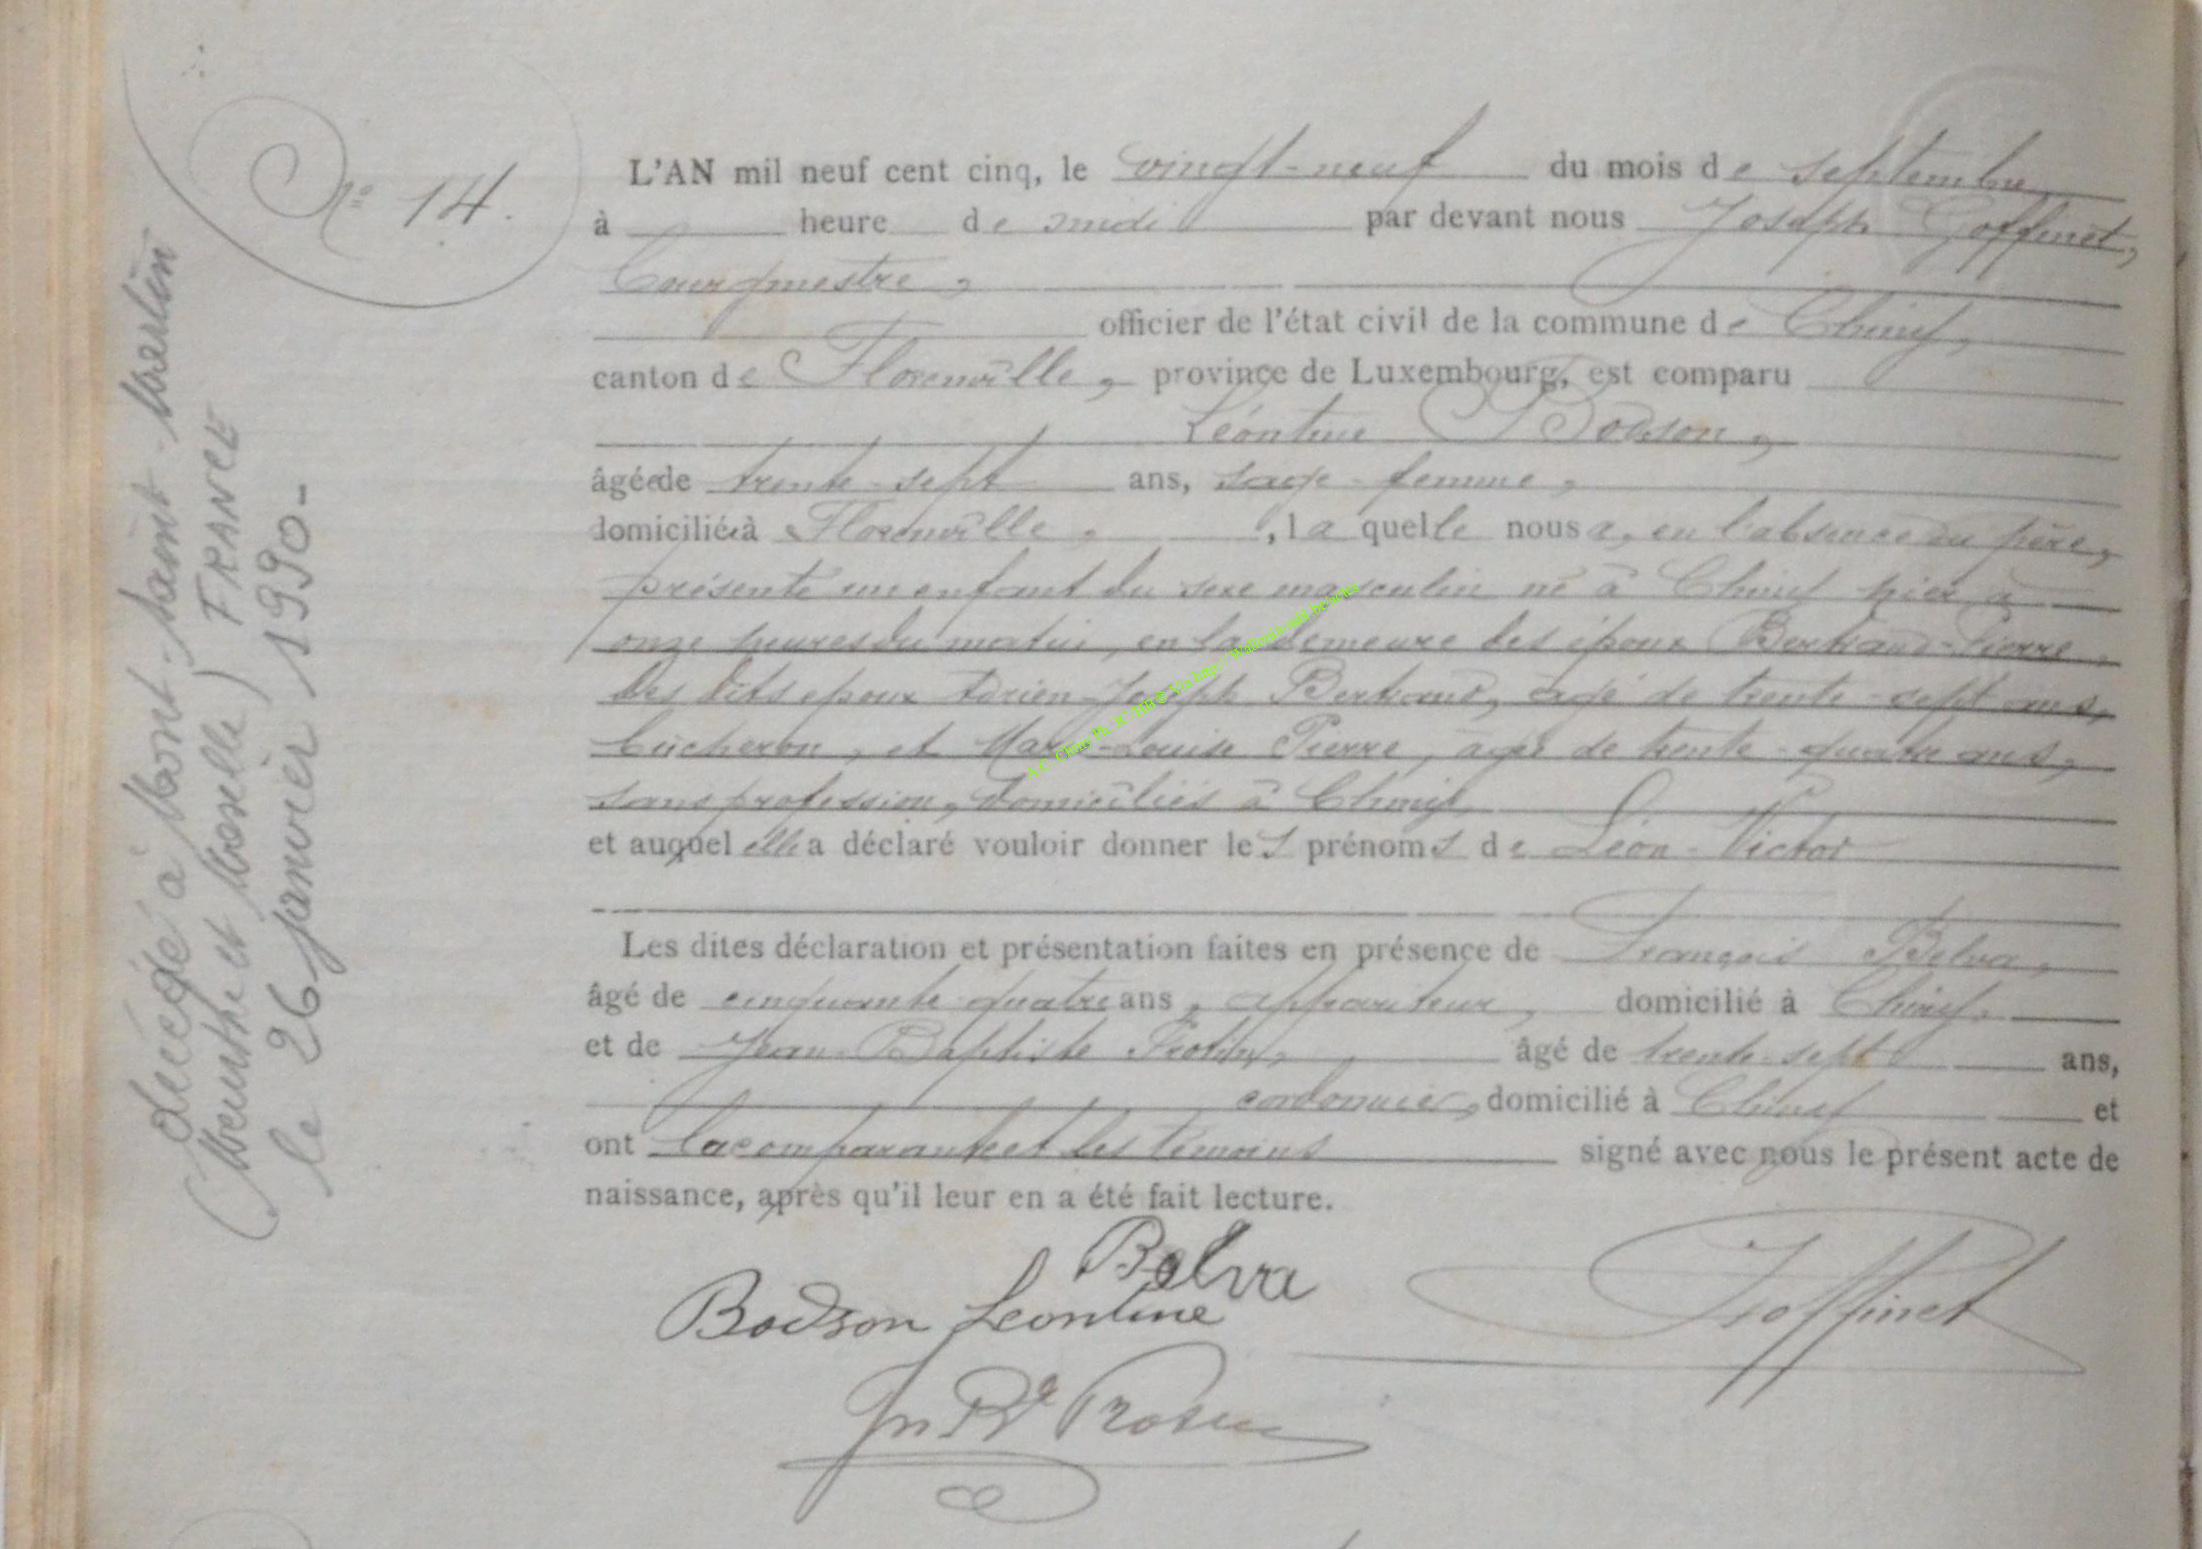 N° 14.
L'AN mil neuf cent cinq, le vingt-neuf du mois de septembre
à heure de midi par devant nous Joseph Goffinet,
bourgmestre,
officier de l'état civil de la commune de Chiny,
canton de Florenville, province de Luxembourg, est comparu
Léontine Bodson,
âgée de trente-sept ans, sage-femme,
domiciliée à Florenville, la quelle nous a, en l'absence du père,
présenté un enfant du sexe masculin né à Chiny hier à
onze heures du matin, en la demeure des époux Bertrand-Pierre,
des dits époux Adrien-Joseph Bertrand, âgé de trente-sept ans,
bûcheron, et Marie-Louise Pierre, âgée de trente-quatre ans,
sans profession, domiciliés à Chiny,
et auquel elle a déclaré vouloir donner les prénoms de Léon-Victor
Les dites déclaration et présentation faites en présence de François Belva,
âgé de cinquante-quatre ans, appariteur, domicilié à Chiny,
et de Jean-Baptiste âgé de trente-sept ans,
cordonnier, domicilié à Chiny et
ont la comparante et les témoins signé avec nous le présent acte de
naissance, après qu'il leur en a été fait lecture.
Belva
Bodson Leontine
Goffinet
Jn Bte
décédé à Mont-Saint-Martin
(Meurthe et Moselle) FRANCE
le 26 janvier 1990-